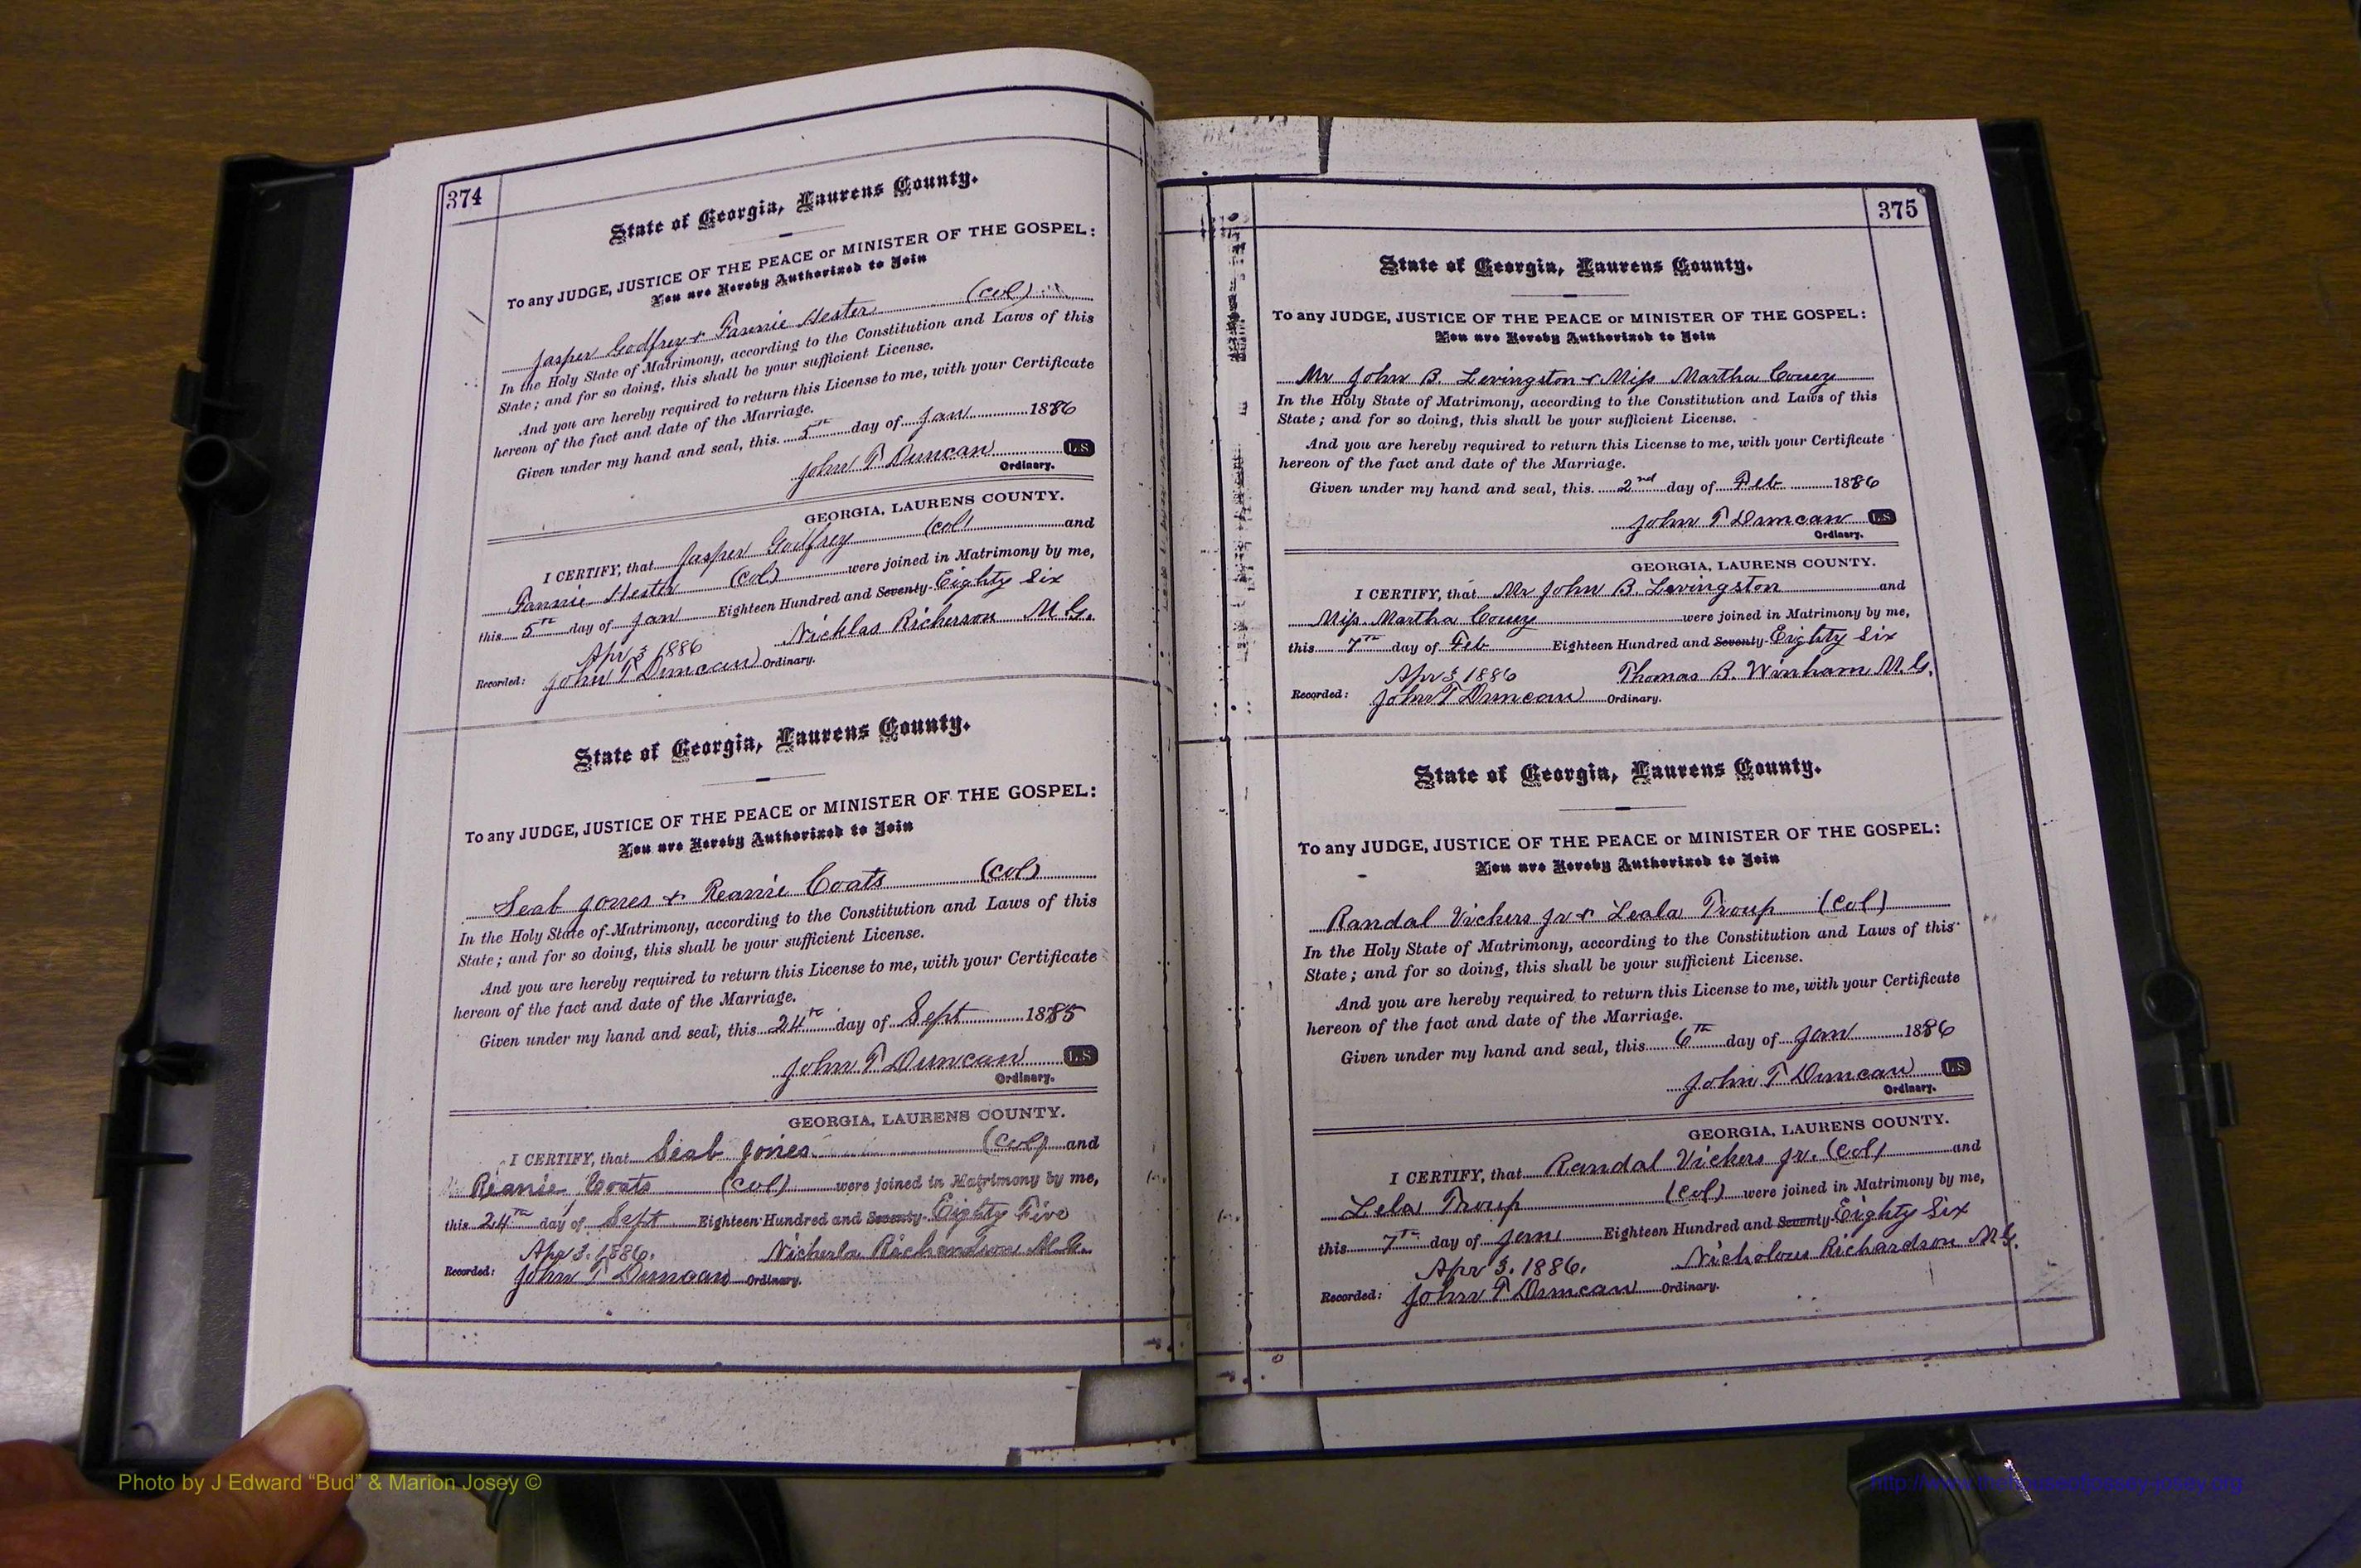 374
State of Georgia, Laurens County.
To any JUDGE, JUSTICE OF THE PEACE or MINISTER OF THE GOSPEL:
You are Hereby Authorized to Join
Jasper Godfrey & Fannie Hester (Col)
In the Holy State of Matrimony, according to the Constitution and Laws of this
State; and for so doing, this shall be your sufficient License.
And you are hereby required to return this License to me, with your Certificate
hereon of the fact and date of the Marriage.
Given under my hand and seal, this 5th day of Jan 1886
John T Duncan L S
Ordinary.
GEORGIA, LAURENS COUNTY.
I CERTIFY, that Jasper Godfrey (Col) and
Fannie Hester (Col) were joined in Matrimony by me,
this 5th day of Jan Eighteen Hundred and Seventy Eighty Six
Nicklas Richerson M.G.
Apr 3 1886
Recorded: John T Duncan Ordinary.
State of Georgia, Laurens County.
To any JUDGE, JUSTICE OF THE PEACE or MINISTER OF THE GOSPEL:
You are Hereby Authorized to Join
Seab Jones & Reanie Coats (Col)
In the Holy State of Matrimony, according to the Constitution and Laws of this
State; and for so doing, this shall be your sufficient License.
And you are hereby required to return this License to me, with your Certificate
hereon of the fact and date of the Marriage.
Given under my hand and seal, this 24th day of Sept 1885
John T Duncan L S
Ordinary.
GEORGIA, LAURENS COUNTY.
I CERTIFY, that Seab Jones (Col) and
Reanie Coats (Col) were joined in Matrimony by me,
this 24th day of Sept Eighteen Hundred and Seventy Eighty Five
Apr 3. 1886. Richardson M.G.
Recorded: John T Duncan Ordinary.
375
State of Georgia, Laurens County.
To any JUDGE, JUSTICE OF THE PEACE or MINISTER OF THE GOSPEL:
You are Hereby Authorized to Join
Mr John B. Levingston & Miss Martha Couey
In the Holy State of Matrimony, according to the Constitution and Laws of this
State; and for so doing, this shall be your sufficient License.
And you are hereby required to return this License to me, with your Certificate
hereon of the fact and date of the Marriage.
Given under my hand and seal, this 2nd day of Feb 1886
John T Duncan L S
Ordinary.
GEORGIA, LAURENS COUNTY.
I CERTIFY, that Mr John B. Levingston and
Miss Martha Couey were joined in Matrimony by me,
this 7th day of Feb Eighteen Hundred and Seventy Eighty Six
Apr 3 1886 Thomas B. Winham M.G.
Recorded: John T Duncan Ordinary.
State of Georgia, Laurens County.
To any JUDGE, JUSTICE OF THE PEACE or MINISTER OF THE GOSPEL:
You are Hereby Authorized to Join
Randal Vickers Jr & Leala Troup (Col)
In the Holy State of Matrimony, according to the Constitution and Laws of this
State; and for so doing, this shall be your sufficient License.
And you are hereby required to return this License to me, with your Certificate
hereon of the fact and date of the Marriage.
Given under my hand and seal, this 6th day of Jan 1886
John T Duncan L S
Ordinary.
GEORGIA, LAURENS COUNTY.
I CERTIFY, that Randal Vickers Jr. (Col) and
Lela Troup (Col) were joined in Matrimony by me,
this 7th day of Jan Eighteen Hundred and Seventy Eighty Six
Apr 3. 1886. Nicholous Richardson M.G.
Recorded: John T Duncan Ordinary.
Photo by J Edward "Bud" & Marion Josey ©